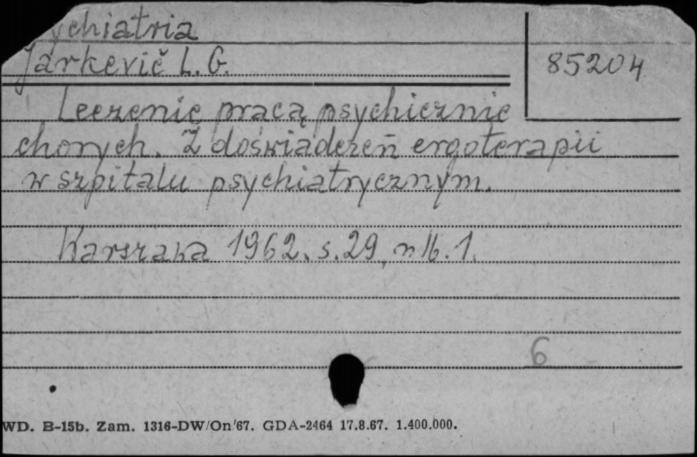 ychiatria
Jarkevič L. G.
85204
Leczenie pracą psychicznie
chorych. Z doświadczeń ergoterapii
w szpitalu psychiatrycznym.
Warszawa 1962. s. 29, nlb. 1.
6
WD. B-15b. Zam. 1316-DW/On/67. GDA-2464 17.8.67. 1.400.000.